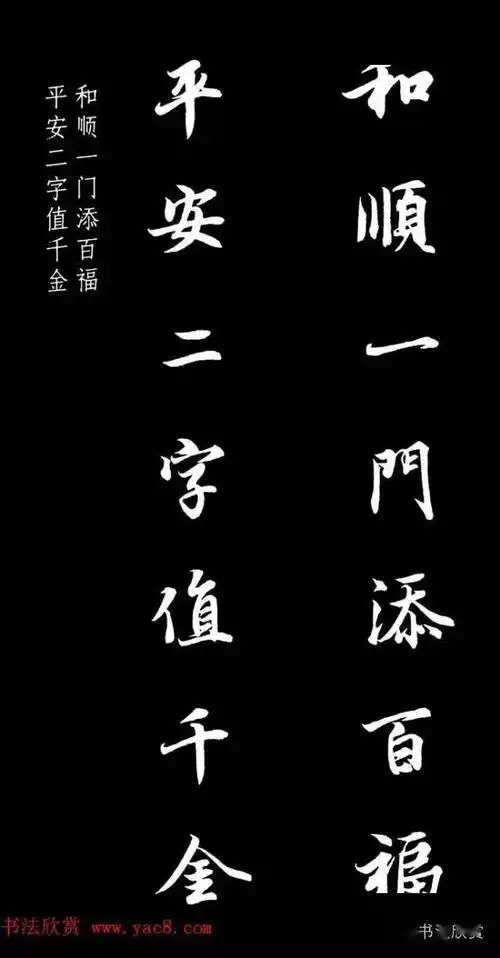 和順一門添百福
平安二字值千金
和顺一门添百福
平安二字值千金
书法欣赏 www.yac8.com
书法欣赏